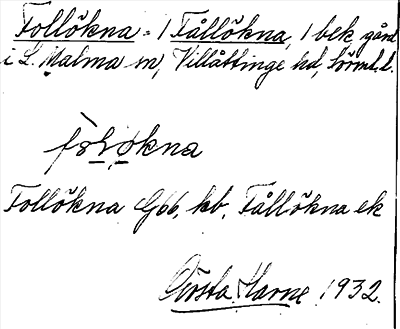 Follökna - 1 Fållökna, 1 bek gård
i L. Malma sn, Villåttinge hd, Sörml. l.
Follökna G66, kb. Fållökna ek
Gösta Harne 1932.